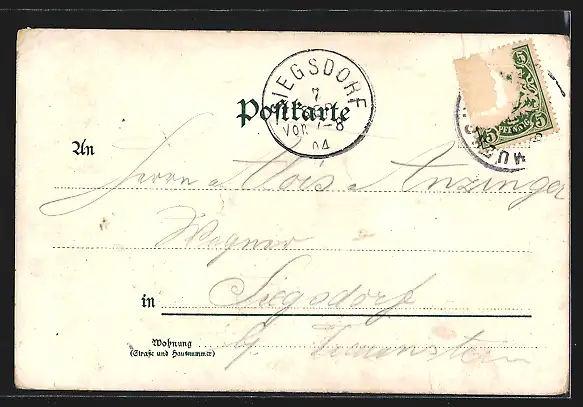 SIEGSDORF
7
Vor. 7-8
04
Postkarte
5
PFENNIG
5
An
Herrn Alois Anzinger
Wagner
in Siegsdorf
Wohnung
(Straße und Hausnummer)
b/ Traunstein